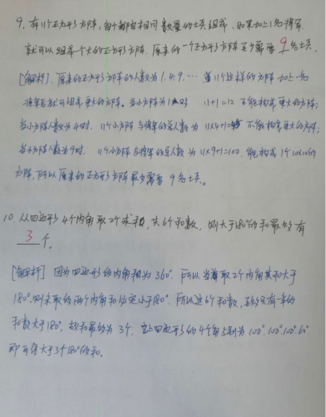 9. 有11个正方形方阵, 每个都由相同数量的士兵组成, 如果加上1名将军,
就可以组成一个大的正方形方阵. 原来的一个正方形方阵至少需要 9 名士兵.
[解析]. 原来的正方形方阵的人数为1.4.9.… 当11个这样的方阵加上一名
将军后就可组成更大的方阵. 当小方阵为1时 11+1=12 不能构成更大的方阵;
当小方阵人数为4时. 11个小方阵与将军的总人数为 11×4+1=45 不能构成更大方阵;
当小方阵人数为9时. 11个小方阵与将军的总人数为 11×9+1=100. 能构成1个10×10的
方阵, 所以原来的正方形方阵最少需要 9 名士兵.
10. 从四边形4个内角取2个求和, 共6个和数, 则大于180°的和最多有
3 个.
[解析] 因为四边形的内角和为360° 所以当取2个内角其和大于
180°. 则未取的两个内角和必定小于180°. 所以这6个和数, 至多有一半的
和数大于180°. 故和最多为3个. 当四边形的4个角分别为 100° 100° 100° 60°
即可得大于3个180°的和.